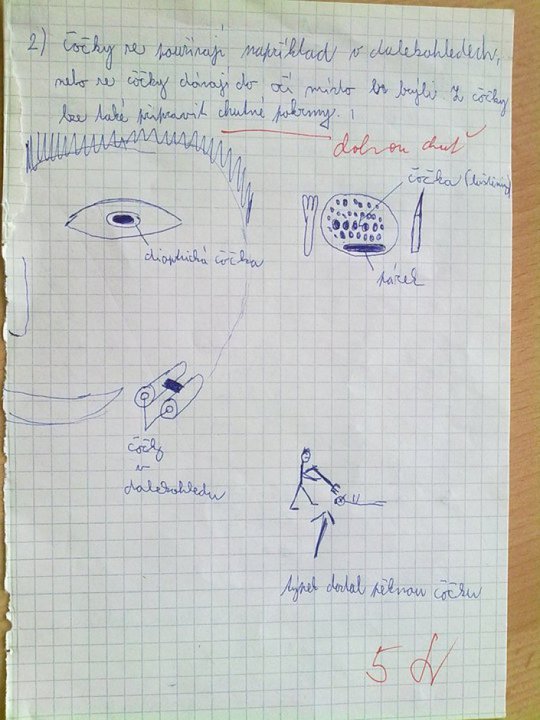 2) čočky se používají například v dalekohledech,
nebo se čočky dávají do očí místo brýlí. Z čočky
lze také připravit chutné pokrmy.
dobrou chuť
čočka (luštěnina)
dioptrická čočka
párek
čočky
v
dalekohledu
týpek dostal pěknou čočku
5